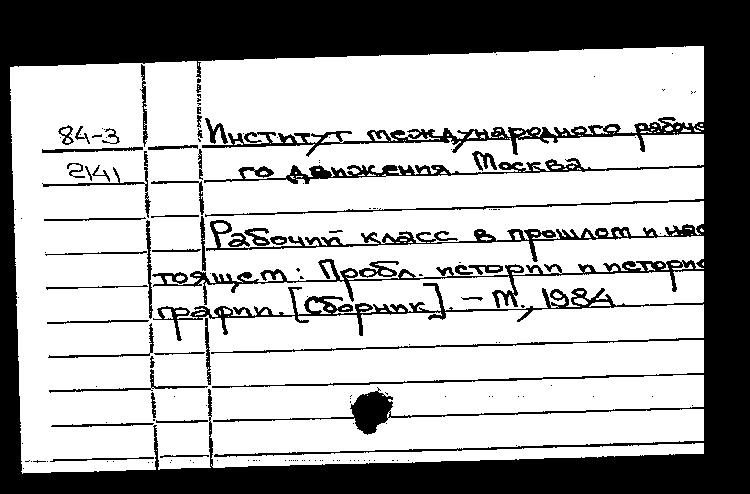 84-3 Институт международного рабоче
2141 го движения. Москва.
Рабочий класс в прошлом и нас
тоящем: Пробл. истории и историо
графии. [Сборник]. – М., 1984.